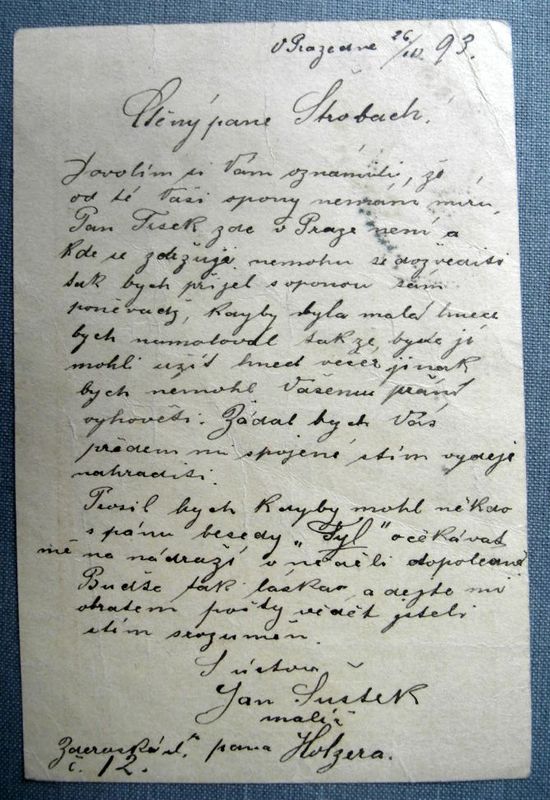 V Praze dne 26/IV. 93.
Ctěný pane Štrobach.
Dovolím si Vám oznámiti, že
od té Vaší opony nemám míru,
Pan Tisek zde v Praze není a
kde se zdržuje nemohu se dozvěditi
tak bych přijel s oponou sám
poněvadž, kdyby byla malá hnec
bych namaloval tak ze, byde ji
mohli užít hned večer jinak
bych nemohl Vašemu přání
vyhověti. Žádal bych Vás
předem mi spojené stím vydeje
nahraditi.
Prosil bych kdyby mohl někdo
s pánu besedy „Tyl" očekávat
mě na nádraží v neděli dopoledne
Budše tak láskav, a dejte mi
obratem pošty vědět jsteli
stím srozuměn.
S úctou
Jan Šustek
malíř
pana Holzera.
č. 12.